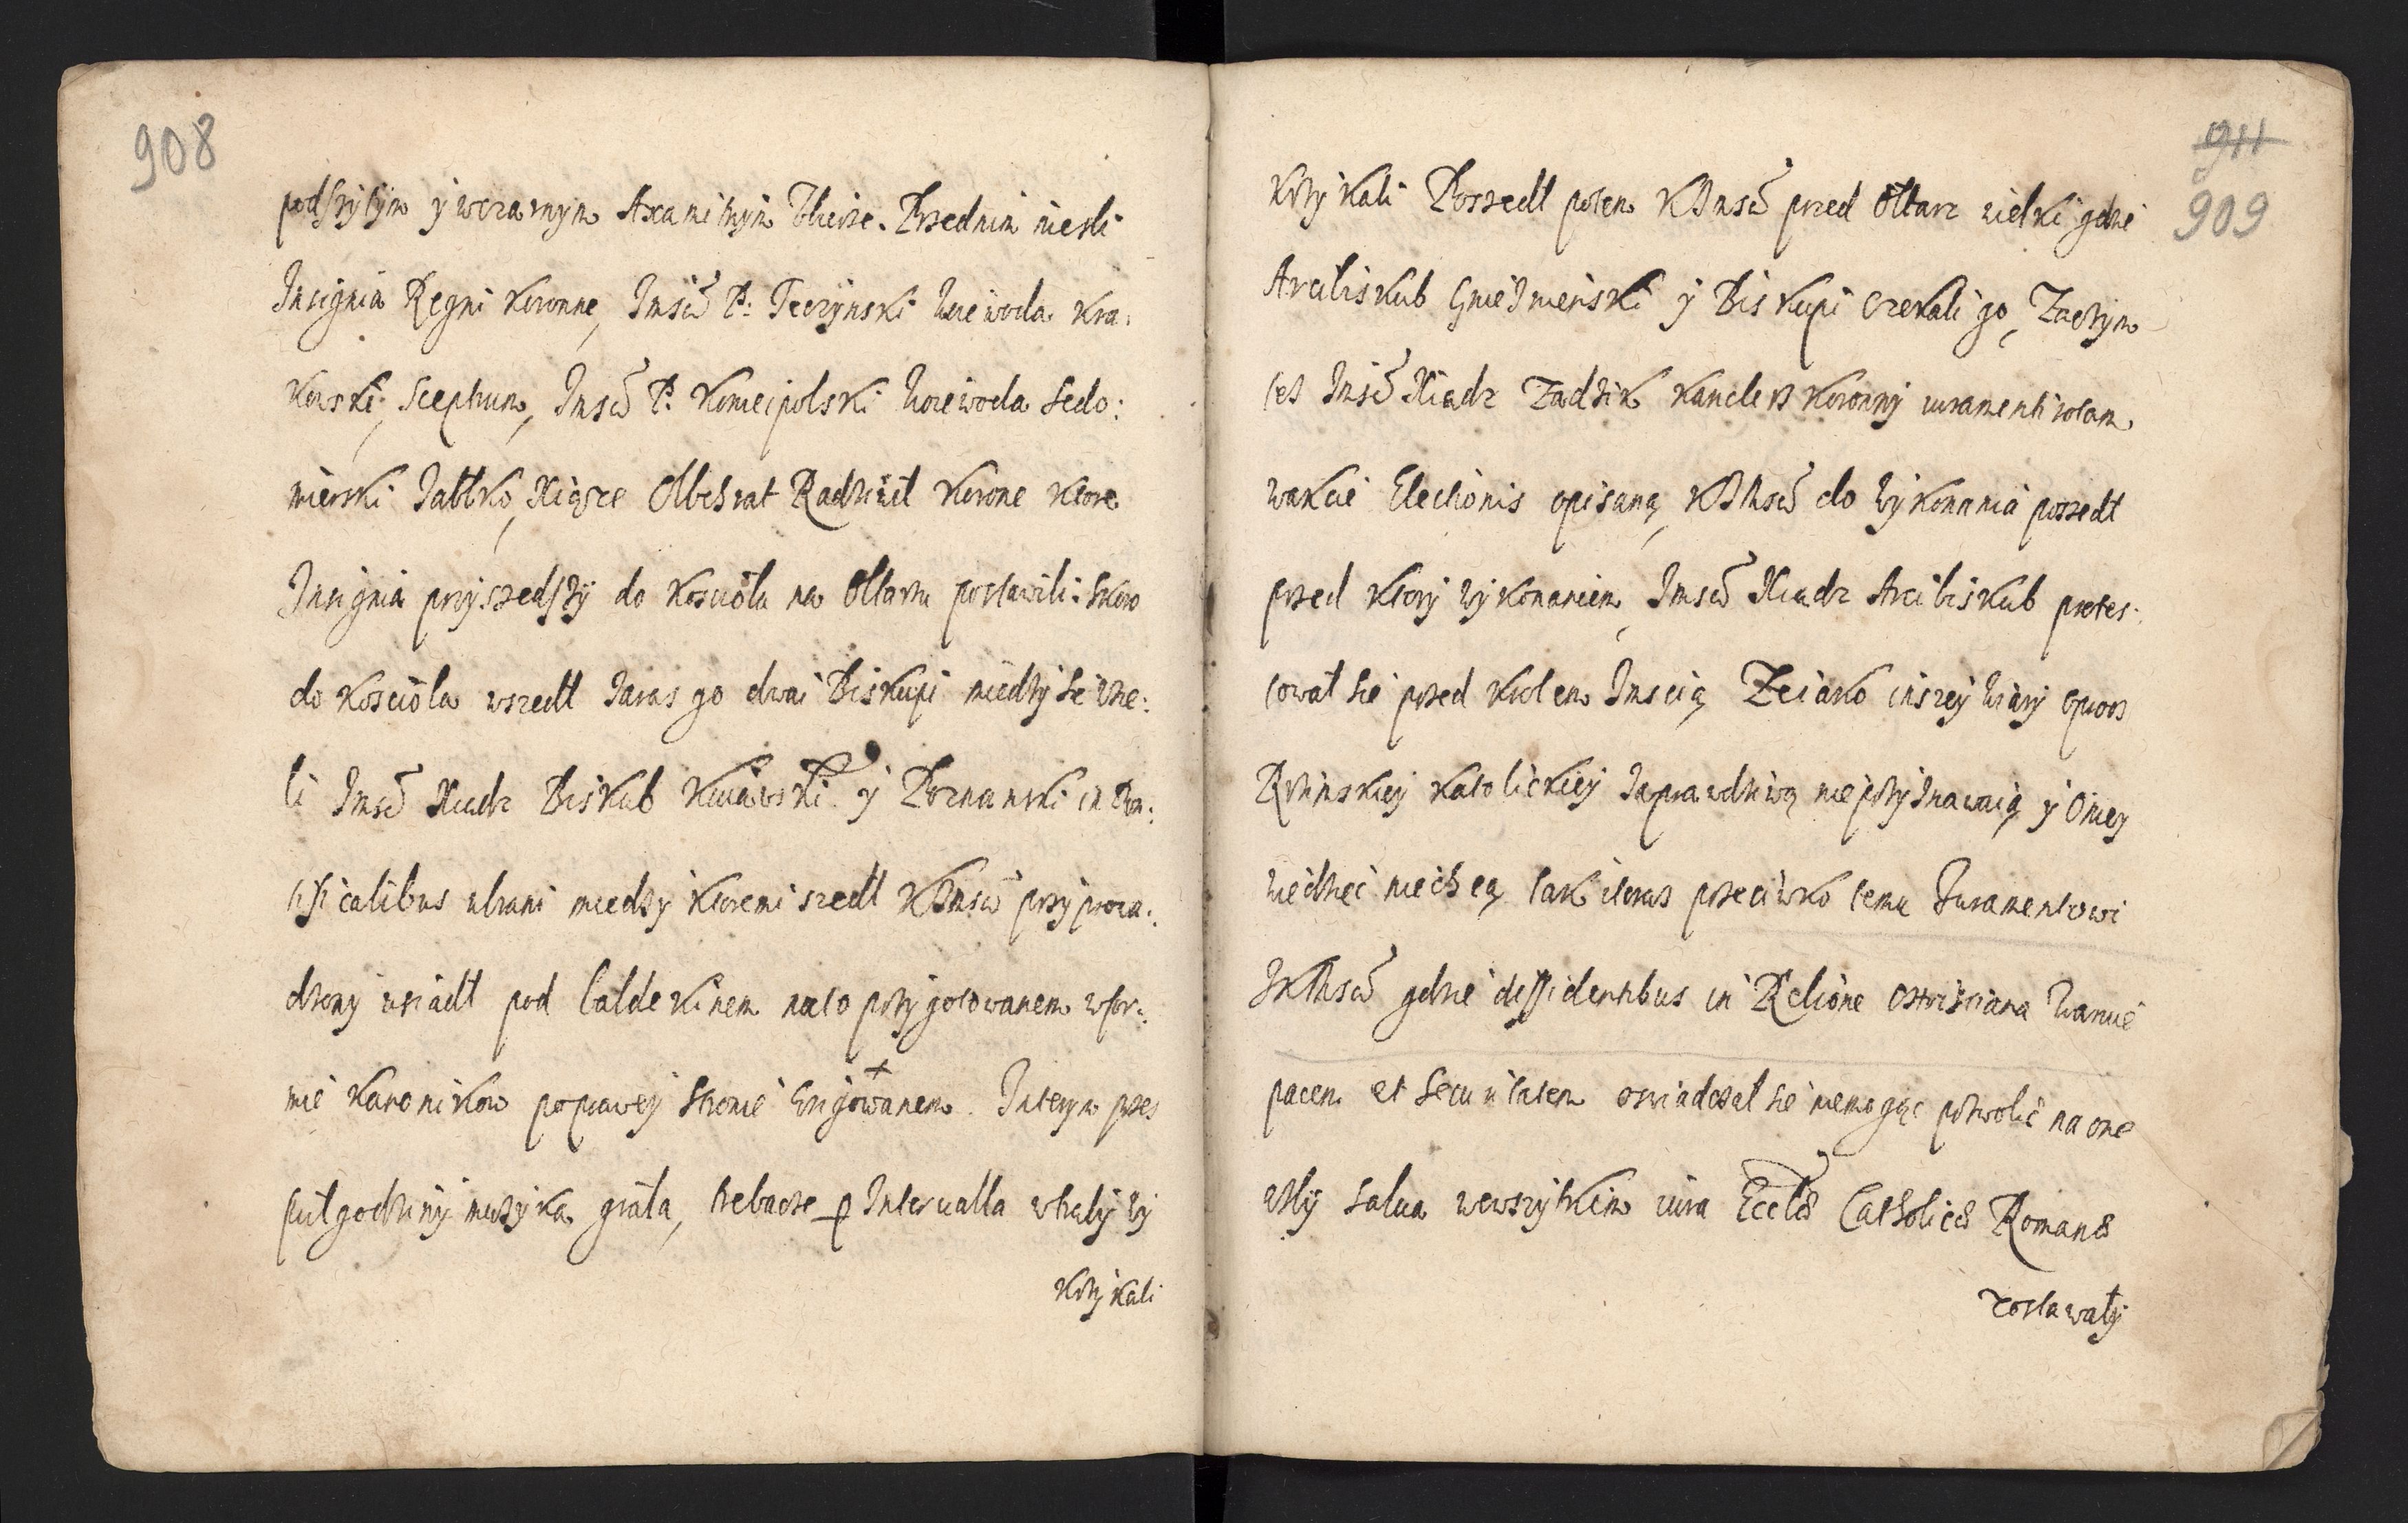 908
podszytym y wczarnym Axamitnym Ubierze. Przednim niesli
Insignia Regni Koronne, Jmsć P: Teczynski Woiewoda Kra:
kowski, Sceptrum, Jmsć P. Koniecpolski Woiewoda Sedo:
mierski Jabłko, Xiąże Olbrsrat Radziwił Korone ktore
Insignia przyszedszy do Kosciola na Ołtarzu postawili: Skoro
do Kosciola wszedł zaras go dwai Biskupi miedzy sie wzie:
li Jmsć Xiadz Biskub Kuiawski y Poznanski in Pon:
tificalibus ubrani miedzy ktoremi szedł KJmsć przyprowa:
dzony usiadł pod Baldekinem nato przygotowanem wfor:
mie Kanonikow poprawey stronie Erigowanem. Interym przes
puł godziny muzyka grała, trebacze p Interualla wtrąby wy
krzykali
911
909
krzykali Poszedł potem KJmsć przed Ołtarz wielki gdzie
Arcibiskub Gnieznienski y Biskupi czekali go, Zaczym
tes Jmsć Xiadz Zadzik Kanclerz Koronny iuramenti rotam
wakcie Electionis opisaną, KJmsć do wykonania poszedł
przed ktory wykonaniem, Jmsć Xiadz Arcibiskub protes:
tował sie przed Krolem Jmscią Ze iako inszey wiary oprocz
Rzymskiey katolickiey zaprawdziwą nieprzyznawaią y Oniey
wiedziec niechcą tak iteras przeciwko temu Juramentowi
JKMsć gdzie dissidentibus in Relione christiana waruie
pacem et securitatem oswiadczał sie niemogąc pozwolic na one
zby salua wewszytkim iura Eccliæ Catholicæ Romanæ
zostawały